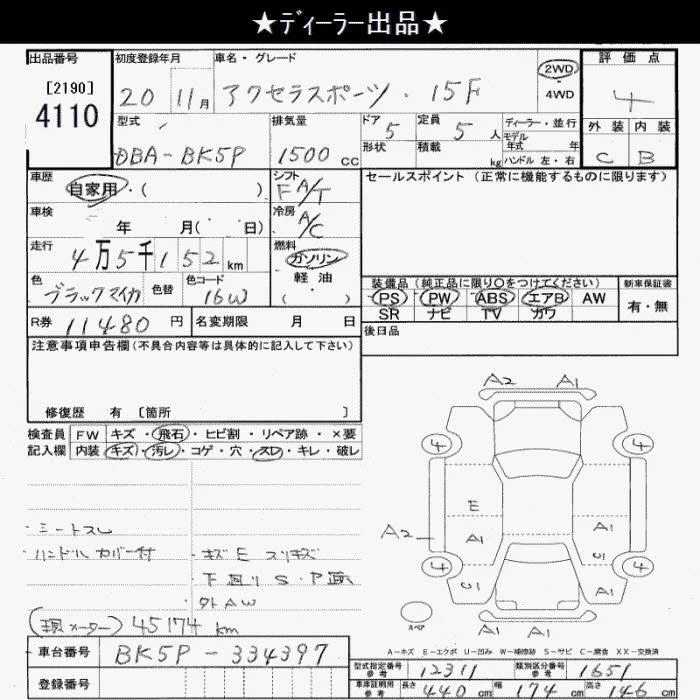 ★ディーラー出品★
出品番号
[2190]
4110
初度登録年月
20 11月
車名・グレード
アクセラスポーツ・15F
2WD
・
4WD
評価点
4
外装 内装
C B
型式
DBA-BK5P
排気量
1500 cc
ドア 5
形状
定員 5 人
積載 kg
ディーラー・並行
モデル
年式 年
ハンドル 左・右
車歴
自家用・( )
シフト
F A/T
車検
年 月( 日)
冷房
A/C
走行
4万5千152 km
燃料
ガソリン
・
軽油
( )
色
ブラックマイカ
色替
色コード
16W
R券 11480 円
名変期限 月 日
セールスポイント(正常に機能するものに限ります)
装備品(純正品に限り○をつけてください)
PS PW ABS エアB AW
SR ナビ TV カワ
新車保証書
有・無
後日品
注意事項申告欄(不具合内容等は具体的に記入して下さい)
修復歴 有 〔箇所 〕
検査員
記入欄
FW キズ・飛石・ヒビ割・リペア跡・×要
内装 キズ・汚レ・コゲ・穴・スレ・キレ・破レ
・シートスレ
・ハンドルカバー付
・キズE スリキズ
・下廻りS・P
・外AW
(現メーター) 45174 km
A2 A1
4 4
E
A1 A1
A2
U1
4 4
U1 A1
スペ
A1 A1
A-キズ E-エクボ U-凹み W-補修跡 S-サビ C-腐食 XX-交換済
車台番号 BK5P-334397
登録番号
型式指定番号
参考
12311
類別区分番号
参考
1651
車庫証明用
参考
長さ 440 cm 幅 174 cm 高さ 146 cm